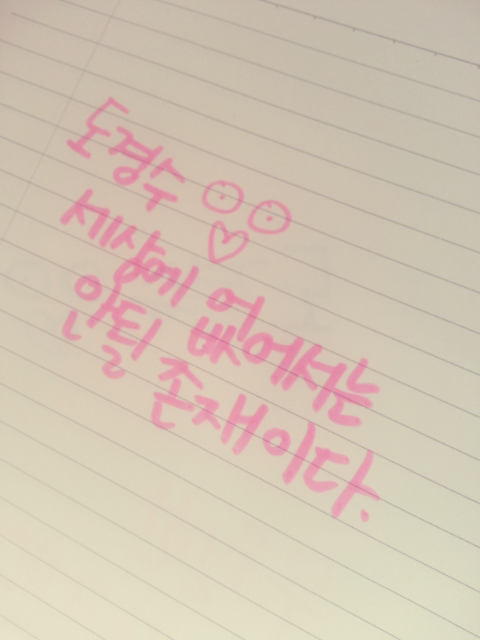 도경수 ⊙⊙
♡
세상에 없어서는
안될 존재이다.